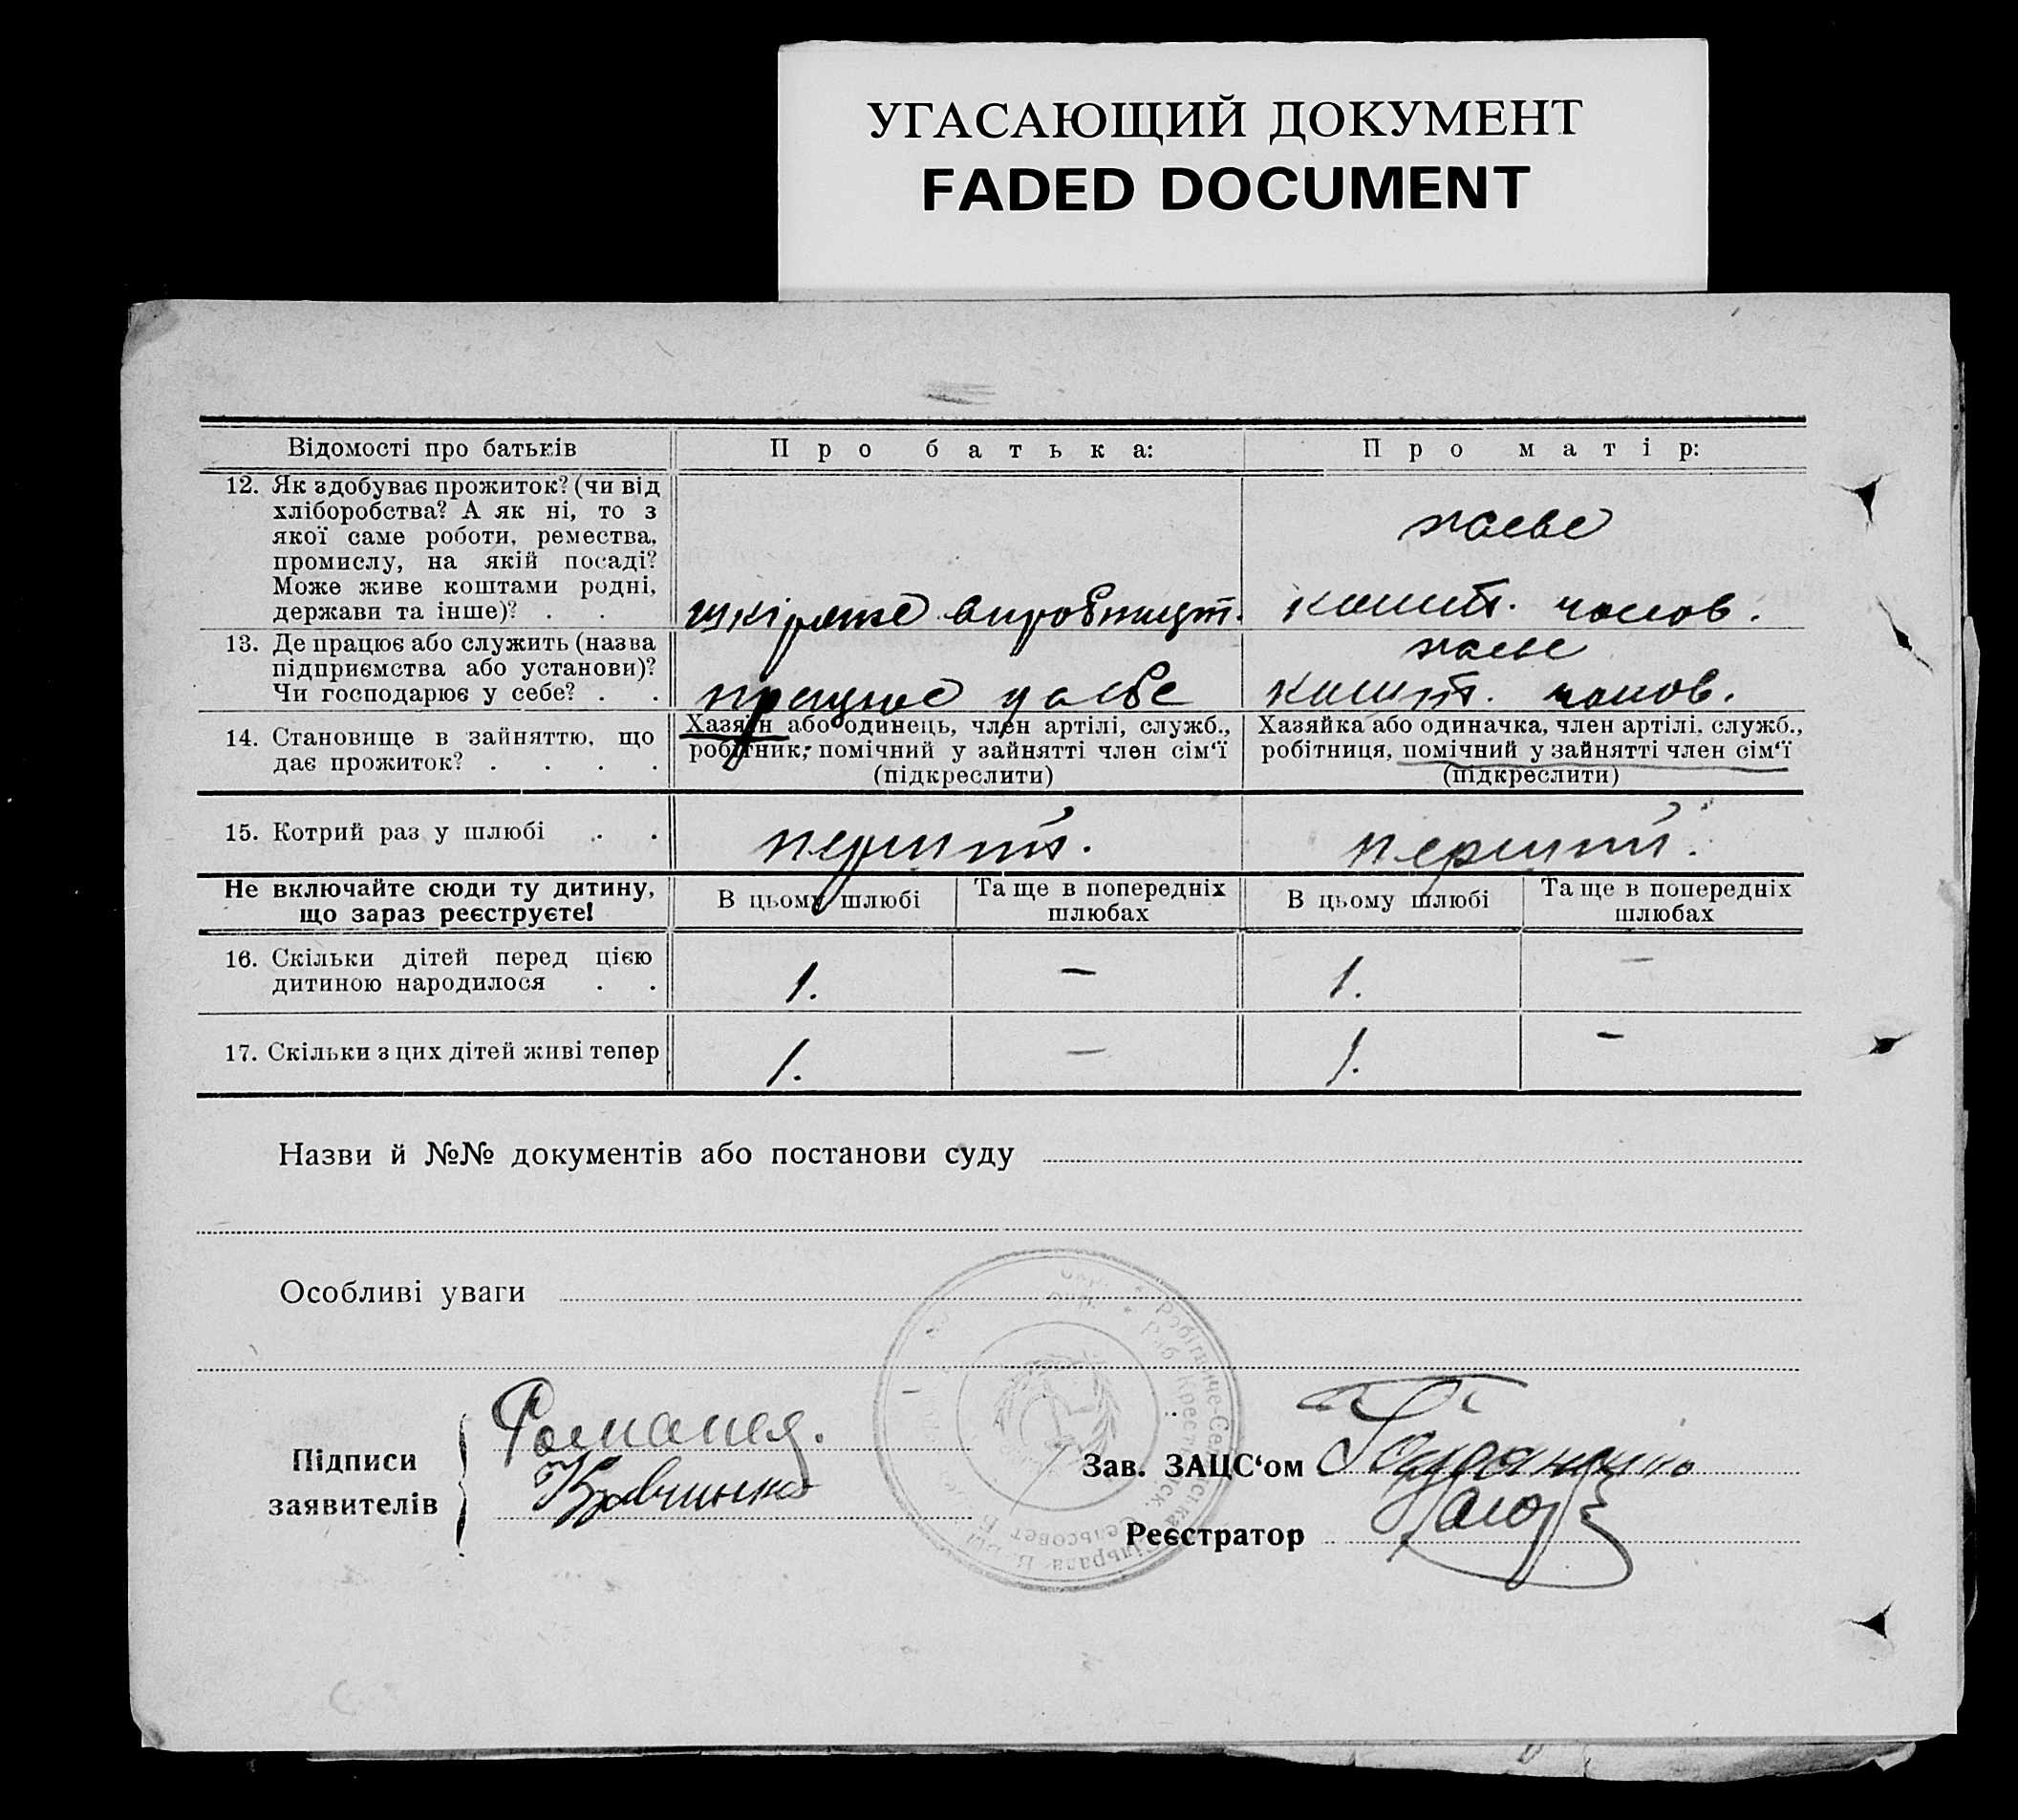 УГАСАЮЩИЙ ДОКУМЕНТ
FADED DOCUMENT
Відомості про батьків
Про батька:
Про матір:
12. Як здобуває прожиток? (чи від
хліборобства? А як ні, то з
якої саме роботи, ремества,
промислу, на якій посаді?
Може живе коштами родні,
держави та інше)? . .
виробницт.
живе
кошт. чолов.
13. Де працює або служить (назва
підприємства або установи)?
Чи господарює у себе? . .
працює у себе
живе
кошт. чолов.
14. Становище в зайняттю, що
дає прожиток? . . . .
Хазяїн або одинець, член артілі, служб.,
робітник, помічний у зайнятті член сім‘ї
(підкреслити)
Хазяйка або одиначка, член артілі, служб.,
робітниця, помічний у зайнятті член сім‘ї
(підкреслити)
15. Котрий раз у шлюбі . .
перший.
перший.
Не включайте сюди ту дитину,
що зараз реєструєте!
В цьому шлюбі
Та ще в попередніх
шлюбах
В цьому шлюбі
Та ще в попередніх
шлюбах
16. Скільки дітей перед цією
дитиною народилося . .
1.
—
1.
—
17. Скільки з цих дітей живі тепер
1.
—
1.
—
Назви й №№ документів або постанови суду
Особливі уваги
Підписи
заявителів
Кравченко
Зав. ЗАЦС‘ом
Реєстратор